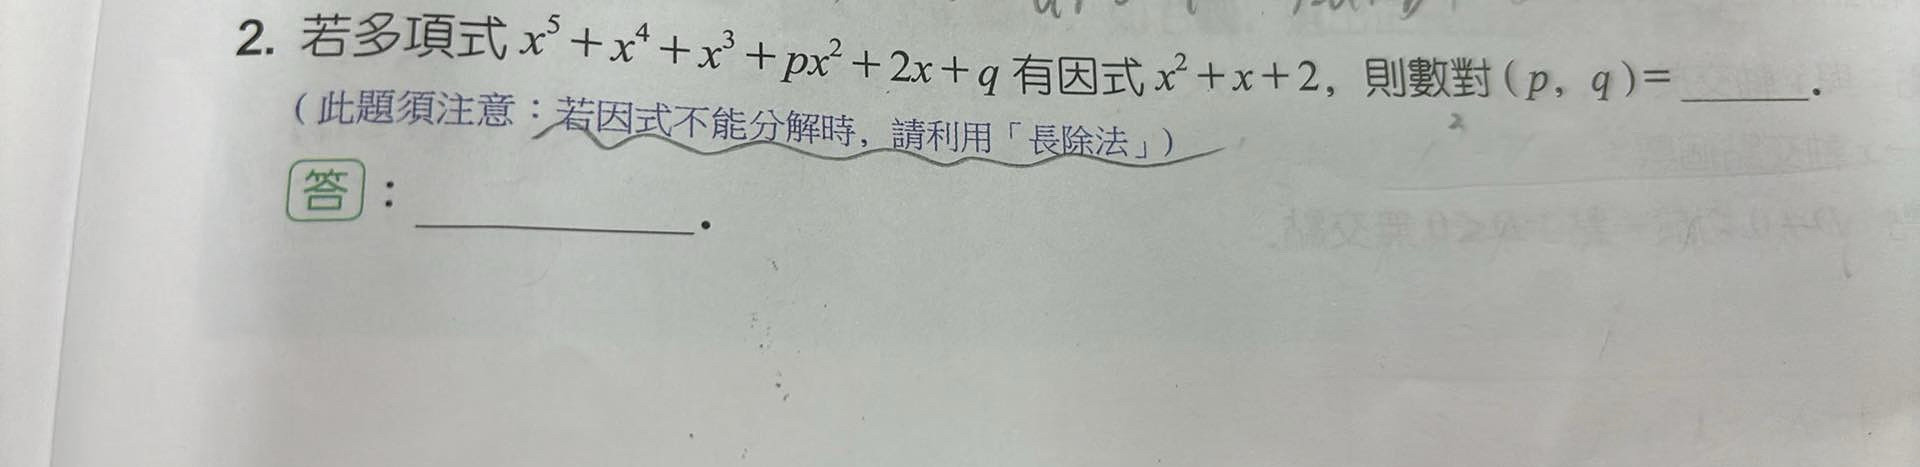 2. 若多項式 x⁵+x⁴+x³+px²+2x+q 有因式 x²+x+2，則數對(p，q)=______.
2
(此題須注意：若因式不能分解時，請利用「長除法」)
答：______.